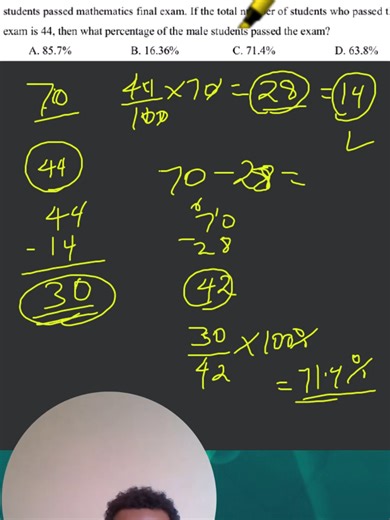 students passed mathematics final exam. If the total number of students who passed t
exam is 44, then what percentage of the male students passed the exam?
A. 85.7% B. 16.36% C. 71.4% D. 63.8%
70
44
44
- 14
30
40/100 × 70 = 28 = 14
70 - 28 =
70
- 28
42
30/42 × 100%
= 71.4%